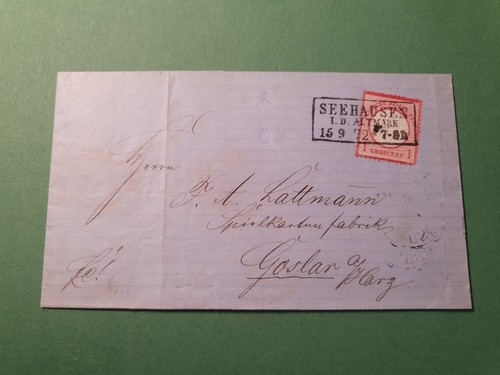 SEEHAUSEN
I. D. ALTMARK
15 9 72 7-8N
1 GROSCHEN 1
Herrn
F. A. Lattmann
Spielkartenfabrik
Goslar a/
Harz